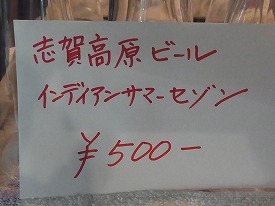 志賀高原ビール
インディアンサマーセゾン
¥500－